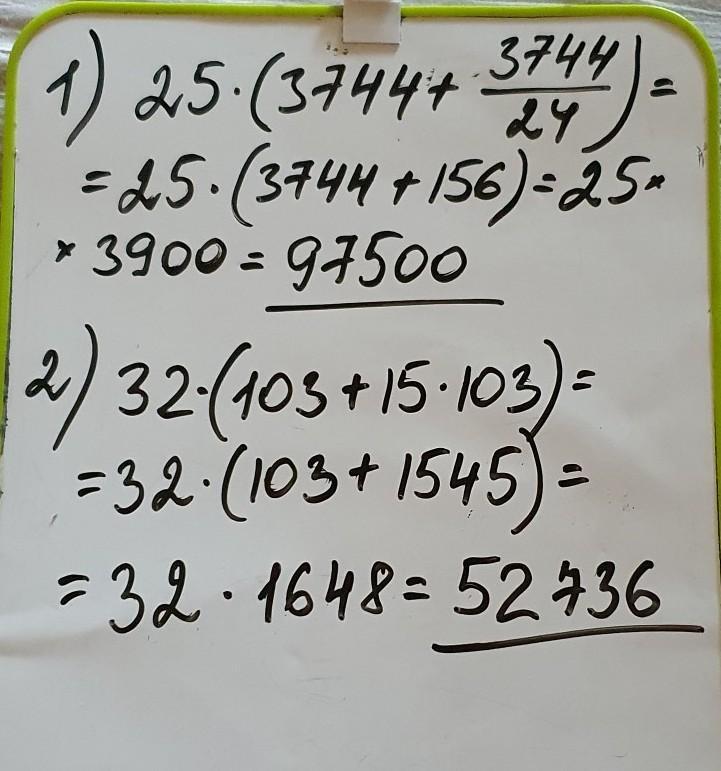 1) 25·(3744+ 3744/24)=
=25·(3744+156)=25×
×3900=97500
2) 32·(103+15·103)=
=32·(103+1545)=
=32·1648=52736